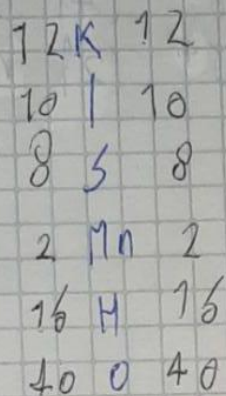 12 K 12
10 I 10
8 S 8
2 Mn 2
16 H 16
40 O 40